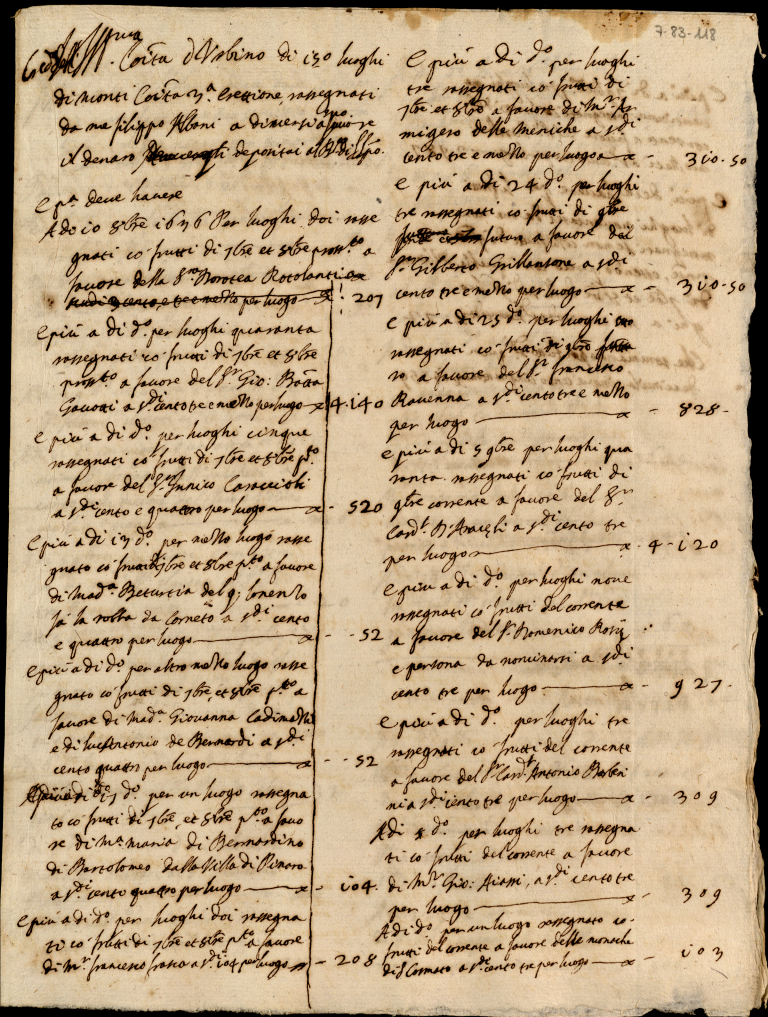 7-83-118
Coíta d'Urbino di 130 luoghi
di Monti Coíta 3.ª erettione, rassegnati
da me filippo Albani a diversi a favore
il denaro depositai
E p.ª deve havere
A dì 10 8bre 1696 Per luoghi doi rasse
gnati co' frutti di 7bre et 8bre pross.to a
favore della S.ra Dorotea Rotolanti a
scudi cento e tre e mezzo per luogo — 207
E più a dì d.º per luoghi quaranta
rassegnati co' frutti di 7bre et 8bre
pross.to a favore del S.r Gio: Batta
Gavotti a s.di cento tre e mezzo per luogo — 4-140
E più a dì d.º per luoghi cinque
rassegnati co' frutti di 7bre et 8bre p.to
a favore del S.r Innico Caraccioli
a s.di cento e quattro per luogo — 520
E più a dì 13 d.º per mezzo luogo rasse
gnato co' frutti di 7bre et 8bre p.to a favore
di Mad.ª Beturtia del q. Lorenzo
fa la robba da Corneto a s.di cento
e quattro per luogo — 52
E più a dì d.º per altro mezzo luogo rasse
gnato co' frutti di 7bre, et 8bre p.to a
favore di Mad.ª Giovanna
e di Luc'Antonio de Bernardi a s.di
cento quattro per luogo — 52
E più a dì 17 d.º per un luogo rassegna
to co' frutti di 7bre, et 8bre p.to a favo
re di M.ª Maria di Bernardino
di Bartolomeo dalla Villa di Pinaro
a s.di cento quattro per luogo — 104.
E più a dì d.º per luoghi doi rassegna
ti co' frutti di 7bre et 8bre p.to a favore
di M.r francesco a s.di 104 per luogo — 208
E più a dì d.º per luoghi
tre rassegnati co' frutti di
7bre et 8bre a favore di M.r Ar
migero delle Meniche a s.di
cento tre e mezzo per luogo — 310-50
E più a dì 24 d.º per luoghi
tre rassegnati co' frutti di 9bre
futura a favore del
S.r Gilberto Grillansone a s.di
cento tre e mezzo per luogo — 310-50
E più a dì 25 d.º per luoghi otto
rassegnati co' frutti di 9bre futu
ro a favore del S.r francesco
Ravenna a s.di cento tre e mezzo
per luogo — 828-
E più a dì 5 9bre per luoghi qua
ranta rassegnati co' frutti di
9bre corrente a favore del S.r
Card.l D'Aracęli a s.di cento tre
per luogo — 4-120
E più a dì d.º per luoghi nove
rassegnati co' frutti del corrente
a favore del S.r Domenico Rosij
e persona da nominarsi a s.di
cento tre per luogo — 927-
E più a dì d.º per luoghi tre
rassegnati co' frutti del corrente
a favore del S.r Card.l Antonio Barberi
ni a s.di cento tre per luogo — 309
A dì 8 d.º per luoghi tre rassegna
ti co' frutti del corrente a favore
di M.r Gio: a s.di cento tre
per luogo — 309
A dì d.º per un luogo rassegnato co'
frutti del corrente a favore delle monache
di S. a s.di cento tre per luogo — 103